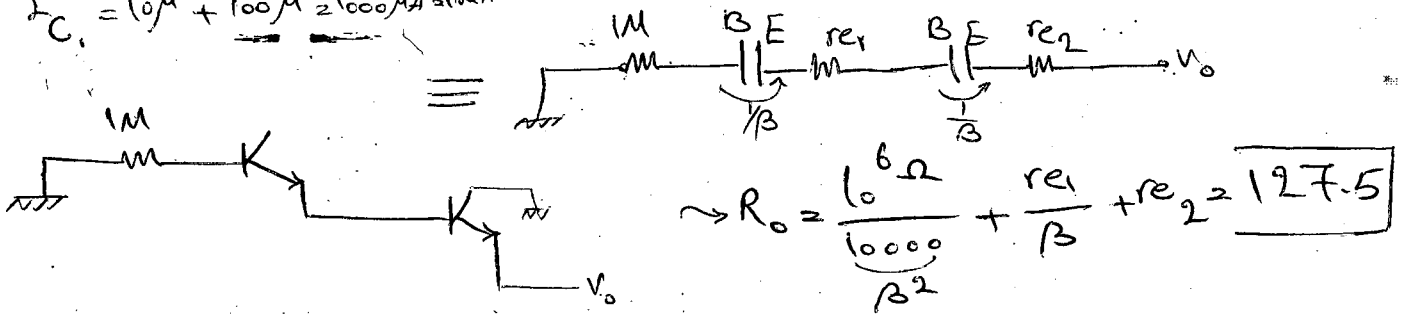 I_C1 = 10μ + 100μ = 1000μA
1M B E re1 B E re2 Vo
≡
1/β 1/β
1M
Vo
⤳ Ro = 10^6 Ω / 10000 + re1 / β + re2 = 127.5
β^2